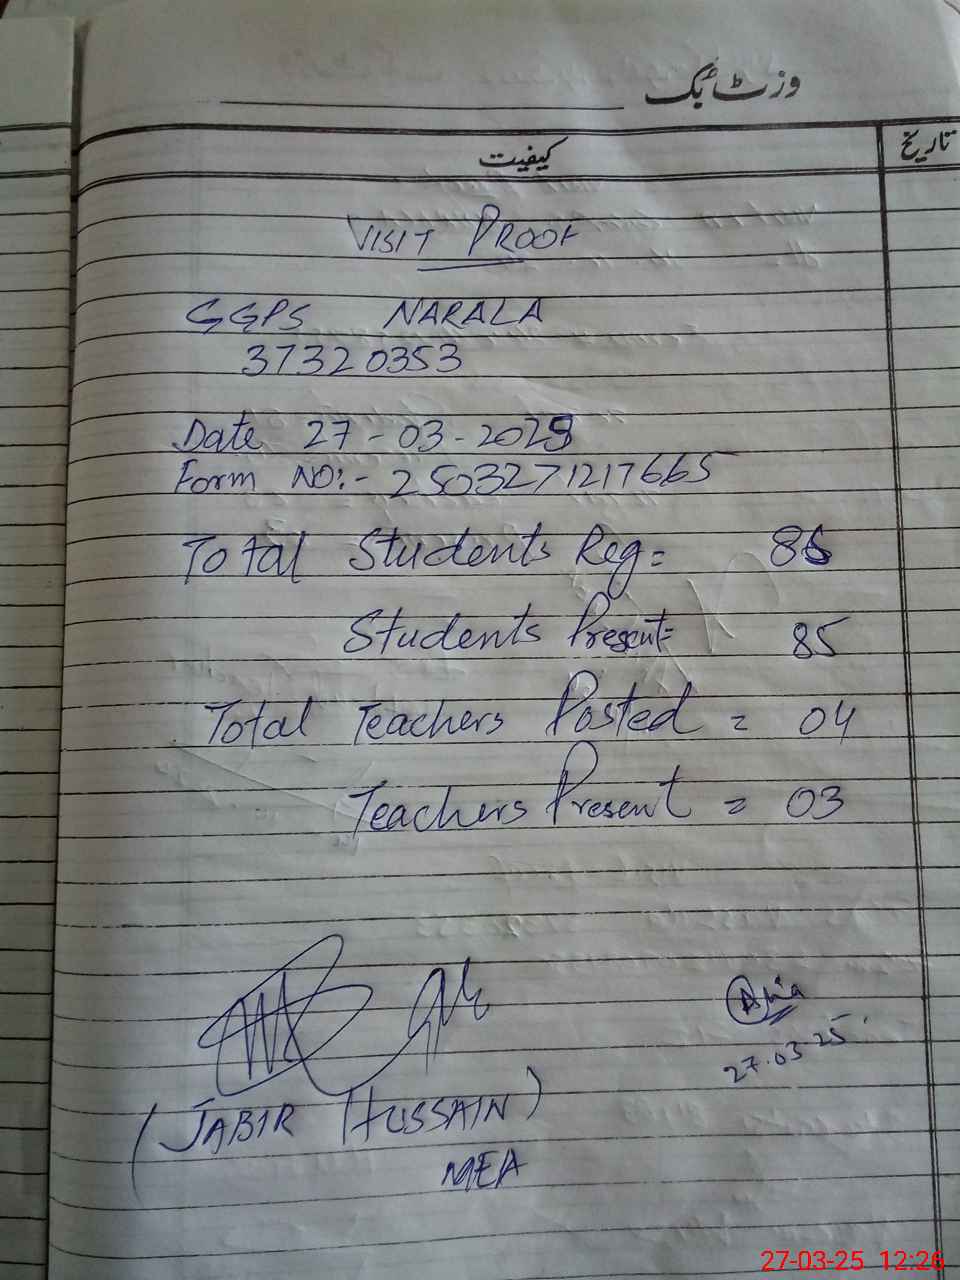 وزٹ بُک
کیفیت
تاریخ
VISIT PROOF
GGPS NARALA
37320353
Date 27-03-2025
Form NO:- 2503271217665
Total Students Reg= 86
Students Present= 85
Total Teachers Posted = 04
Teachers Present = 03
27.03.25
(JABIR HUSSAIN)
MEA
27-03-25 12:26